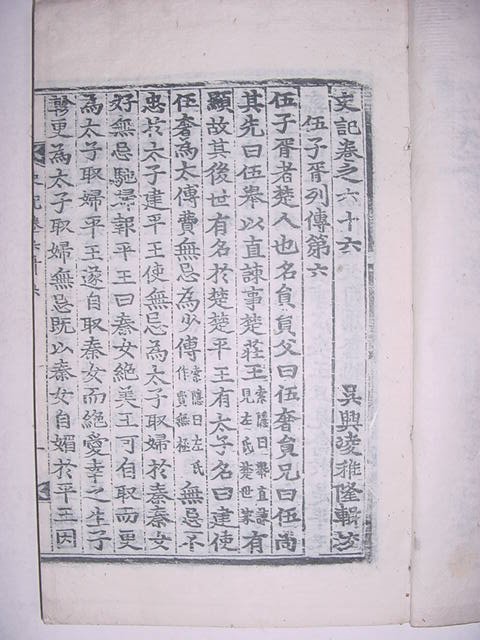 史記卷之六十六 吳興凌稚隆輯挍
伍子胥列傳第六
伍子胥者楚人也名員員父曰伍奢員兄曰伍尚
其先曰伍舉以直諫事楚莊王索隱曰舉直諫見左氏楚世家有
顯故其後世有名於楚楚平王有太子名曰建使
伍奢為太傅費無忌為少傅索隱曰左氏作費無極無忌不
忠於太子建平王使無忌為太子取婦於秦秦女
好無忌馳歸報平王曰秦女絕美王可自取而更
為太子取婦平王遂自取秦女而絕愛幸之生子
軫更為太子取婦無忌既以秦女自媚於平王因